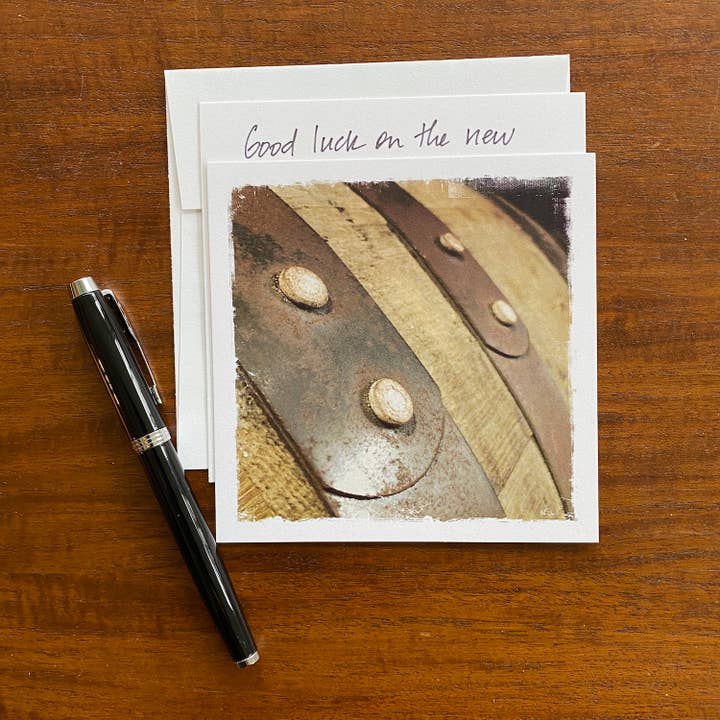 Good luck on the new